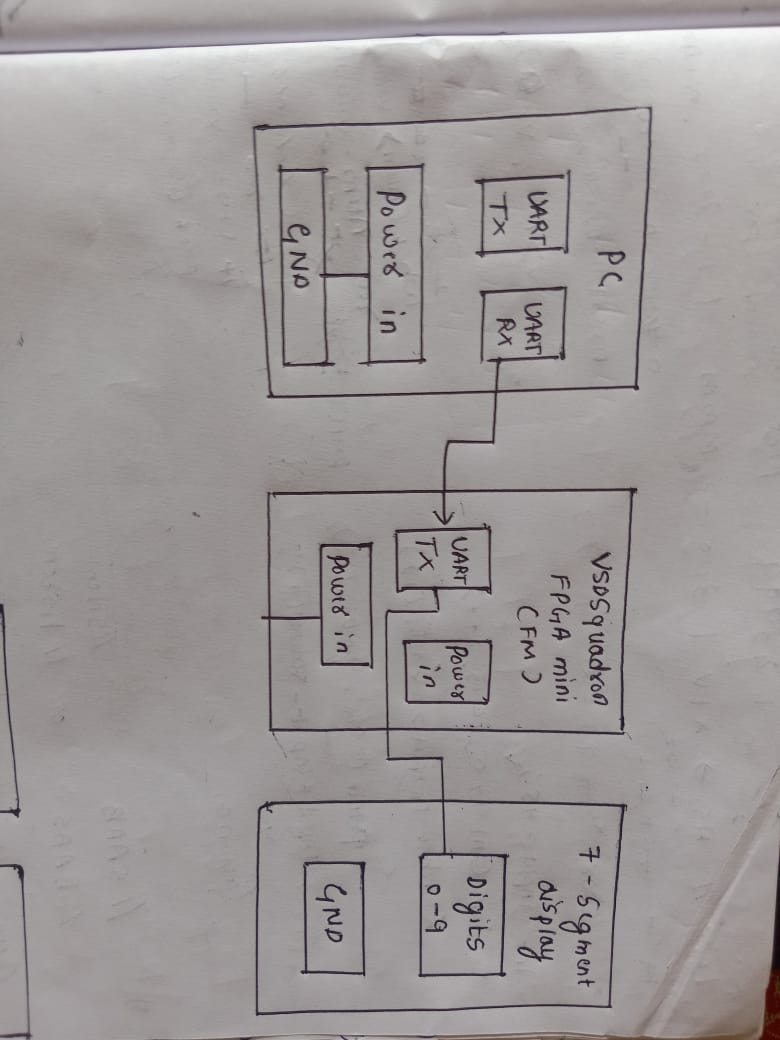 PC
UART
TX
UART
RX
Power in
GND
VSDSquadron
FPGA mini
(FM)
UART
TX
Power
in
Power in
7-Segment
display
Digits
0-9
GND